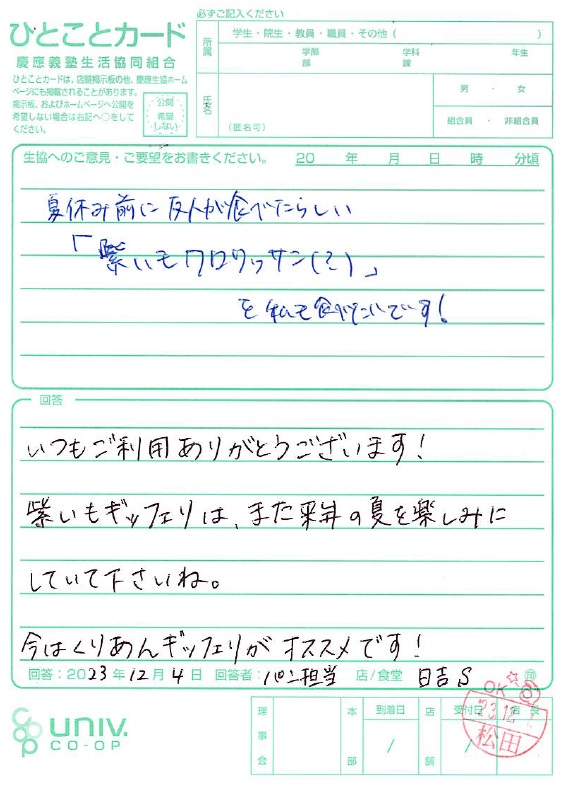 ひとことカード
慶應義塾生活協同組合
ひとことカードは、店舗掲示板の他、慶應生協ホーム
ページにも掲載されることがあります。
掲示板、およびホームページへ公開を
希望しない場合は右記へ○をして
ください。
公開
希望
しない
必ずご記入ください
所属
学生・院生・教員・職員・その他（　　　）
学部　学科　年生
部　課
氏名
（匿名可）
男・女
組合員・非組合員
生協へのご意見・ご要望をお書きください。　20　年　月　日　時　分頃
夏休み前に友人が食べたらしい
「紫いもクロワッサン(?)」
を私も食べたいです!
回答
いつもご利用ありがとうございます!
紫いもギッフェリは、また来年の夏を楽しみに
していて下さいね。
今はくりあんギッフェリがオススメです!
回答：2023年12月4日　回答者：パン担当　店/食堂　日吉S　㊞
UNIV.
CO-OP
理事会
本部
到着日
/
店舗
受付日
/
店長
OK☆
'23.12.
松田